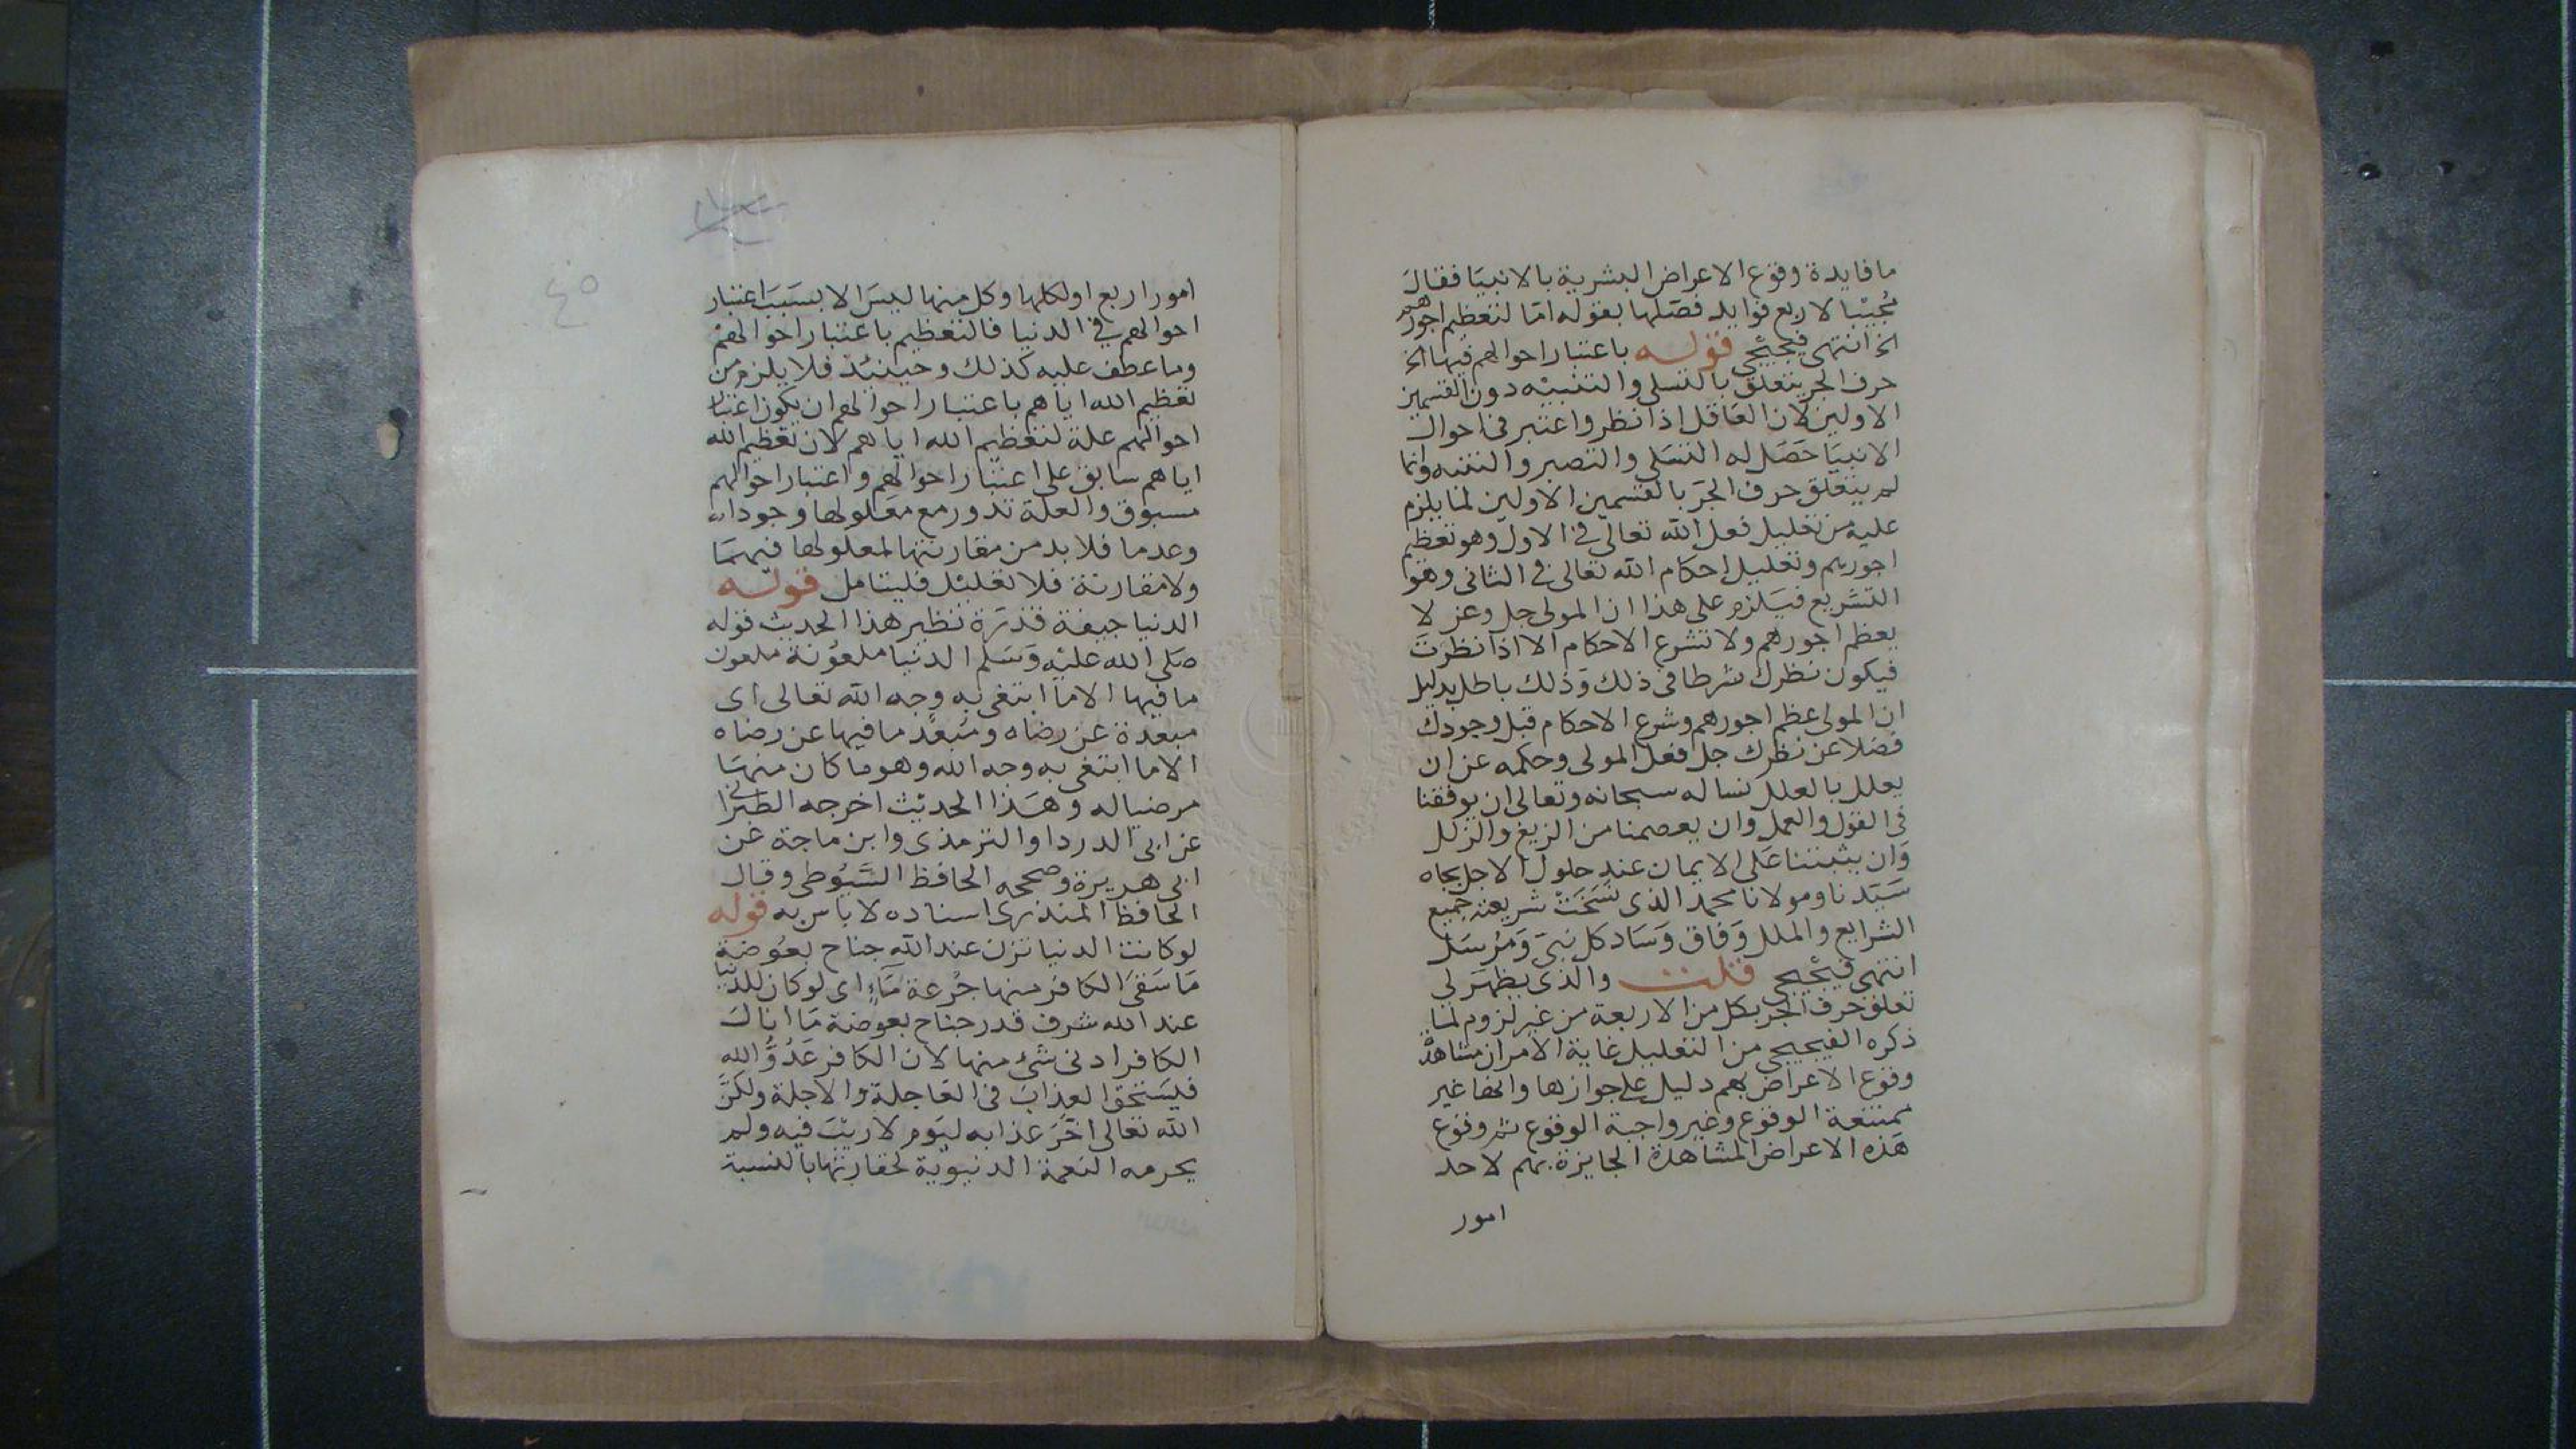 ما فايدة وقوع الاعراض البشرية بالانبيا فقال
مُجيبا لاربع فوايد فصّلها بقوله امّا لتعظيم اجورهم
الخ انتهى فجيجي قوله باعتبار احوالهم فيها الخ
حرف الجر يتعلق بالتسلى والتنبيه دون القسمين
الاولين لان العاقل اذا نظر واعتبر فى احوال
الانبيا حَصَل له التسلى والتصبر والتنبه وانما
لم يتعلق حرف الجر بالقسمين الاولين لما يلزم
عليه من تعليل فعل الله تعالى فى الاول وهو تعظيم
اجورهم وتعليل احكام الله تعالى فى الثانى وهو
التشريع فيلزم على هذا ان المولى جل وعز لا
يعظم اجورهم ولا تشرع الاحكام الا اذا نظرت
فيكون نظرك شرطا فى ذلك وذلك باطل بدليل
ان المولى عظم اجورهم وشرع الاحكام قبل وجودك
فضلا عن نظرك جل فعل المولى وحكمه عن ان
يعلل بالعلل نساله سبحانه وتعالى ان يوفقنا
فى القول والعمل وان يعصمنا من الزيغ والزلل
وان يثبتنا على الايمان عند حلول الاجل بجاه
سَيّدنا ومولانا محمد الذى نَسَخَتْ شريعته جميع
الشرايع والملل وَفاق وَسَاد كل نبى وَمُرسَل
انتهى فجيجي قلت والذى يظهر لى
تعلق حرف الجر بكل من الاربعة من غير لزوم لما
ذكره الفجيجي من التعليل غاية الامر ان مشاهدة
وقوع الاعراض بهم دليل على جوازها وانها غير
ممتنعة الوقوع وغير واجبة الوقوع ثم وقوع
هذه الاعراض المشاهدة الجايزة بهم لاحد
امور
امور اربع او لكلها وكل منها ليس الا بسبب اعتبار
احوالهم فى الدنيا فالتعظيم باعتبار احوالهم
وما عطف عليه كذلك وحينئذ فلا يلزم من
تعظيم الله اياهم باعتبار احوالهم ان يكون اعتبار
احوالهم علة لتعظيم الله اياهم لان تعظيم الله
اياهم سابق على اعتبار احوالهم واعتبار احوالهم
مسبوق والعلة تدور مع معلولها وجودا
وعدما فلا بد من مقارنتها لمعلولها فيهما
ولا مقارنة فلا تعليل فليتامل قوله
الدنيا جيفة قذرة نظير هذا الحديث قوله
صَلى الله عليه وَسَلم الدنيا ملعُونة ملعون
ما فيها الا ما ابتغى به وجه الله تعالى اى
مبعدة عن رضاه ومُبعَّد ما فيها عن رضاه
الا ما ابتغى به وجه الله وهو ما كان منها
مرضيا له وهذا الحديث اخرجه الطبرانى
عن ابى الدردا والترمذى وابن ماجة عن
ابى هريرة وصححه الحافظ السَّيُوطى وقال
الحافظ المنذرى اسناده لا باس به قوله
لو كانت الدنيا تزن عند الله جناح بعُوضة
مَا سَقىَ الكافر منها جُرعة مَآءٍ اى لو كان للدنيا
عند الله شرف قدر جناح بعوضة مَا انال
الكافر ادنى شئ منها لان الكافر عَدُوُّ الله
فليستحق العذاب فى العاجلة والاجلة ولكنَّ
الله تعالى اخَّرَ عذابه ليَوم لا ريْبَ فيه ولم
يحرمه النعمة الدنيوية لحقارتها بالنسبة
٤٥